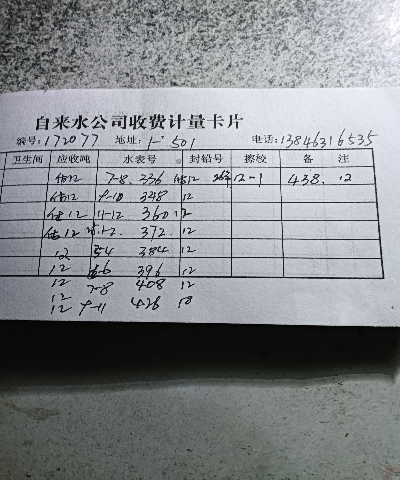 自来水公司收费计量卡片
编号:172077 地址:1-501 电话:13846316535
卫生间 应收吨 水表号 封铅号 擦校 备 注
估12 7-8. 236 估12 12-1 438. 12
估12 9-10 348 12
估12 11-12 360 12
估12 1-2. 372. 12
12 54 384 12
12 6-6 396 12
12 7-8 408 12
12
12 9-11 428 10